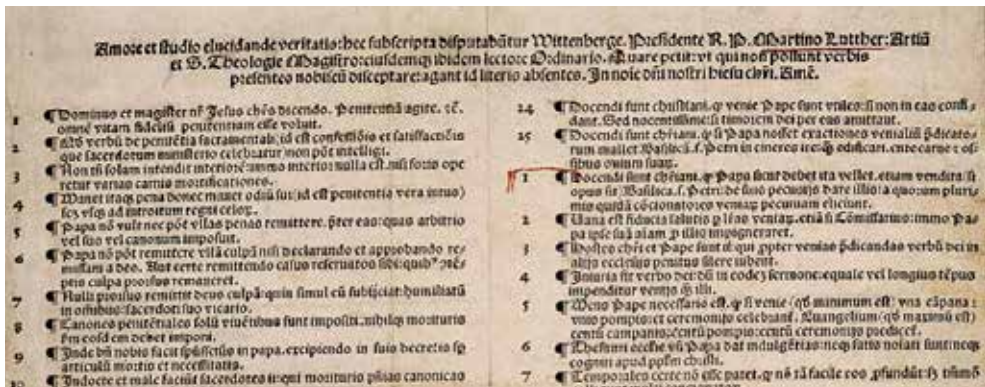 Amore et studio elucidande veritatis: hec subscripta disputabūtur Wittenberge. Presidente R. P. Martino Lutther: Artiū
et S. Theologie Magistro: eiusdemq; ibidem lectore Ordinario. Quare petit: vt qui non possunt verbis
presentes nobiscū disceptare: agant id literis absentes. In noīe dn̄i nostri hiesu chr̄i. Amē.
1 ¶ Dominus et magister nr̄ Jesus chr̄s dicendo. Penitentiā agite. ꝛc.
omnē vitam fideliū penitentiam esse voluit.
2 ¶ Qd̄ verbū de penitētia sacramentali; id est confessiōis et satisfactiōis
que sacerdotum ministerio celebratur non pōt intelligi.
3 ¶ Non tn̄ solam intendit interiorē: immo interior nulla est. nisi foris ope
retur varias carnis mortificationes.
4 ¶ Manet itaq; pena donec manet odiū sui; (id est penitentia vera intus)
scz vsq; ad introitum regni celoꝝ.
5 ¶ Papa nō vult nec pōt vllas penas remittere. p̄ter eas: quas arbitrio
vel suo vel canonum imposuit.
6 ¶ Papa nō pōt remittere vllā culpā nisi declarando et approbando re-
missam a deo. Aut certe remittendo casus reseruatos sibi: quibꝰ ↄtēp-
tis culpa prorsus remaneret.
7 ¶ Nulli prorsus remittit deus culpā: quin simul eū subijciat: humiliatū
in omnibus: sacerdoti suo vicario.
8 ¶ Canones penitētiales solū viuētibus sunt impositi. nihilq; morituris
ꝑm eosdem debet imponi.
9 ¶ Inde bn̄ nobis facit spūssctūs in papa. excipiendo in suis decretis sꝑ
articulū mortis et necessitatis.
10 ¶ Indocte et male faciūt sacerdotes ii: qui morituris pn̄ias canonicas
24 ¶ Docendi sunt christiani. ꝙ venie Pape sunt vtiles: si non in eas confi-
dant. Sed nocentissime: si timorem dei per eas amittant.
25 ¶ Docendi sunt chr̄iani. ꝙ si Papa nosset exactiones venialiū p̄dicato-
rum mallet Basilicā. s. Petri in cineres ire: ꝙ̄ edificari. ex cute carne ꞇ os-
sibus ouium suaꝝ.
1 ¶ Docendi sunt chr̄iani. ꝙ Papa sicut debet ita vellet. etiam vendita (si
opus sit) Basilica. s. Petri: de suis pecuniis dare illis: a quorum pluri-
mis quidā cōcionatores veniaꝝ pecuniam eliciunt.
2 ¶ Uana est fiducia salutis ꝑ lr̄as veniaꝝ. etiā si Cōmissarius: immo Pa-
pa ipse suā aīam ꝓ illis impigneraret.
3 ¶ Hostes chr̄i et Pape sunt ii: qui ꝓpter venias p̄dicandas verbū dei in
aliis ecclesiis penitus silere iubent.
4 ¶ Iniuria fit verbo dei: dū in eodez sermone: equale vel longius tēpus
impenditur veniis ꝙ̄ illi.
5 ¶ Mens Pape necessario est. ꝙ si venie (qd̄ minimum est) vna cāpana:
vnis pompis: et ceremoniis celebrant̄. Euangelium (qd̄ maximū est)
centū campanis: centū pompis: centū ceremoniis predicet̄.
6 ¶ Thesauri ecclesie vn̄ Papa dat indulgētias: neq; satis noīati sunt: neq;
cogniti apud ppl̄m christi.
7 ¶ Temporales certe nō esse patet. ꝙ nō tā facile eos ꝓfundūt: sꝫ tm̄mō